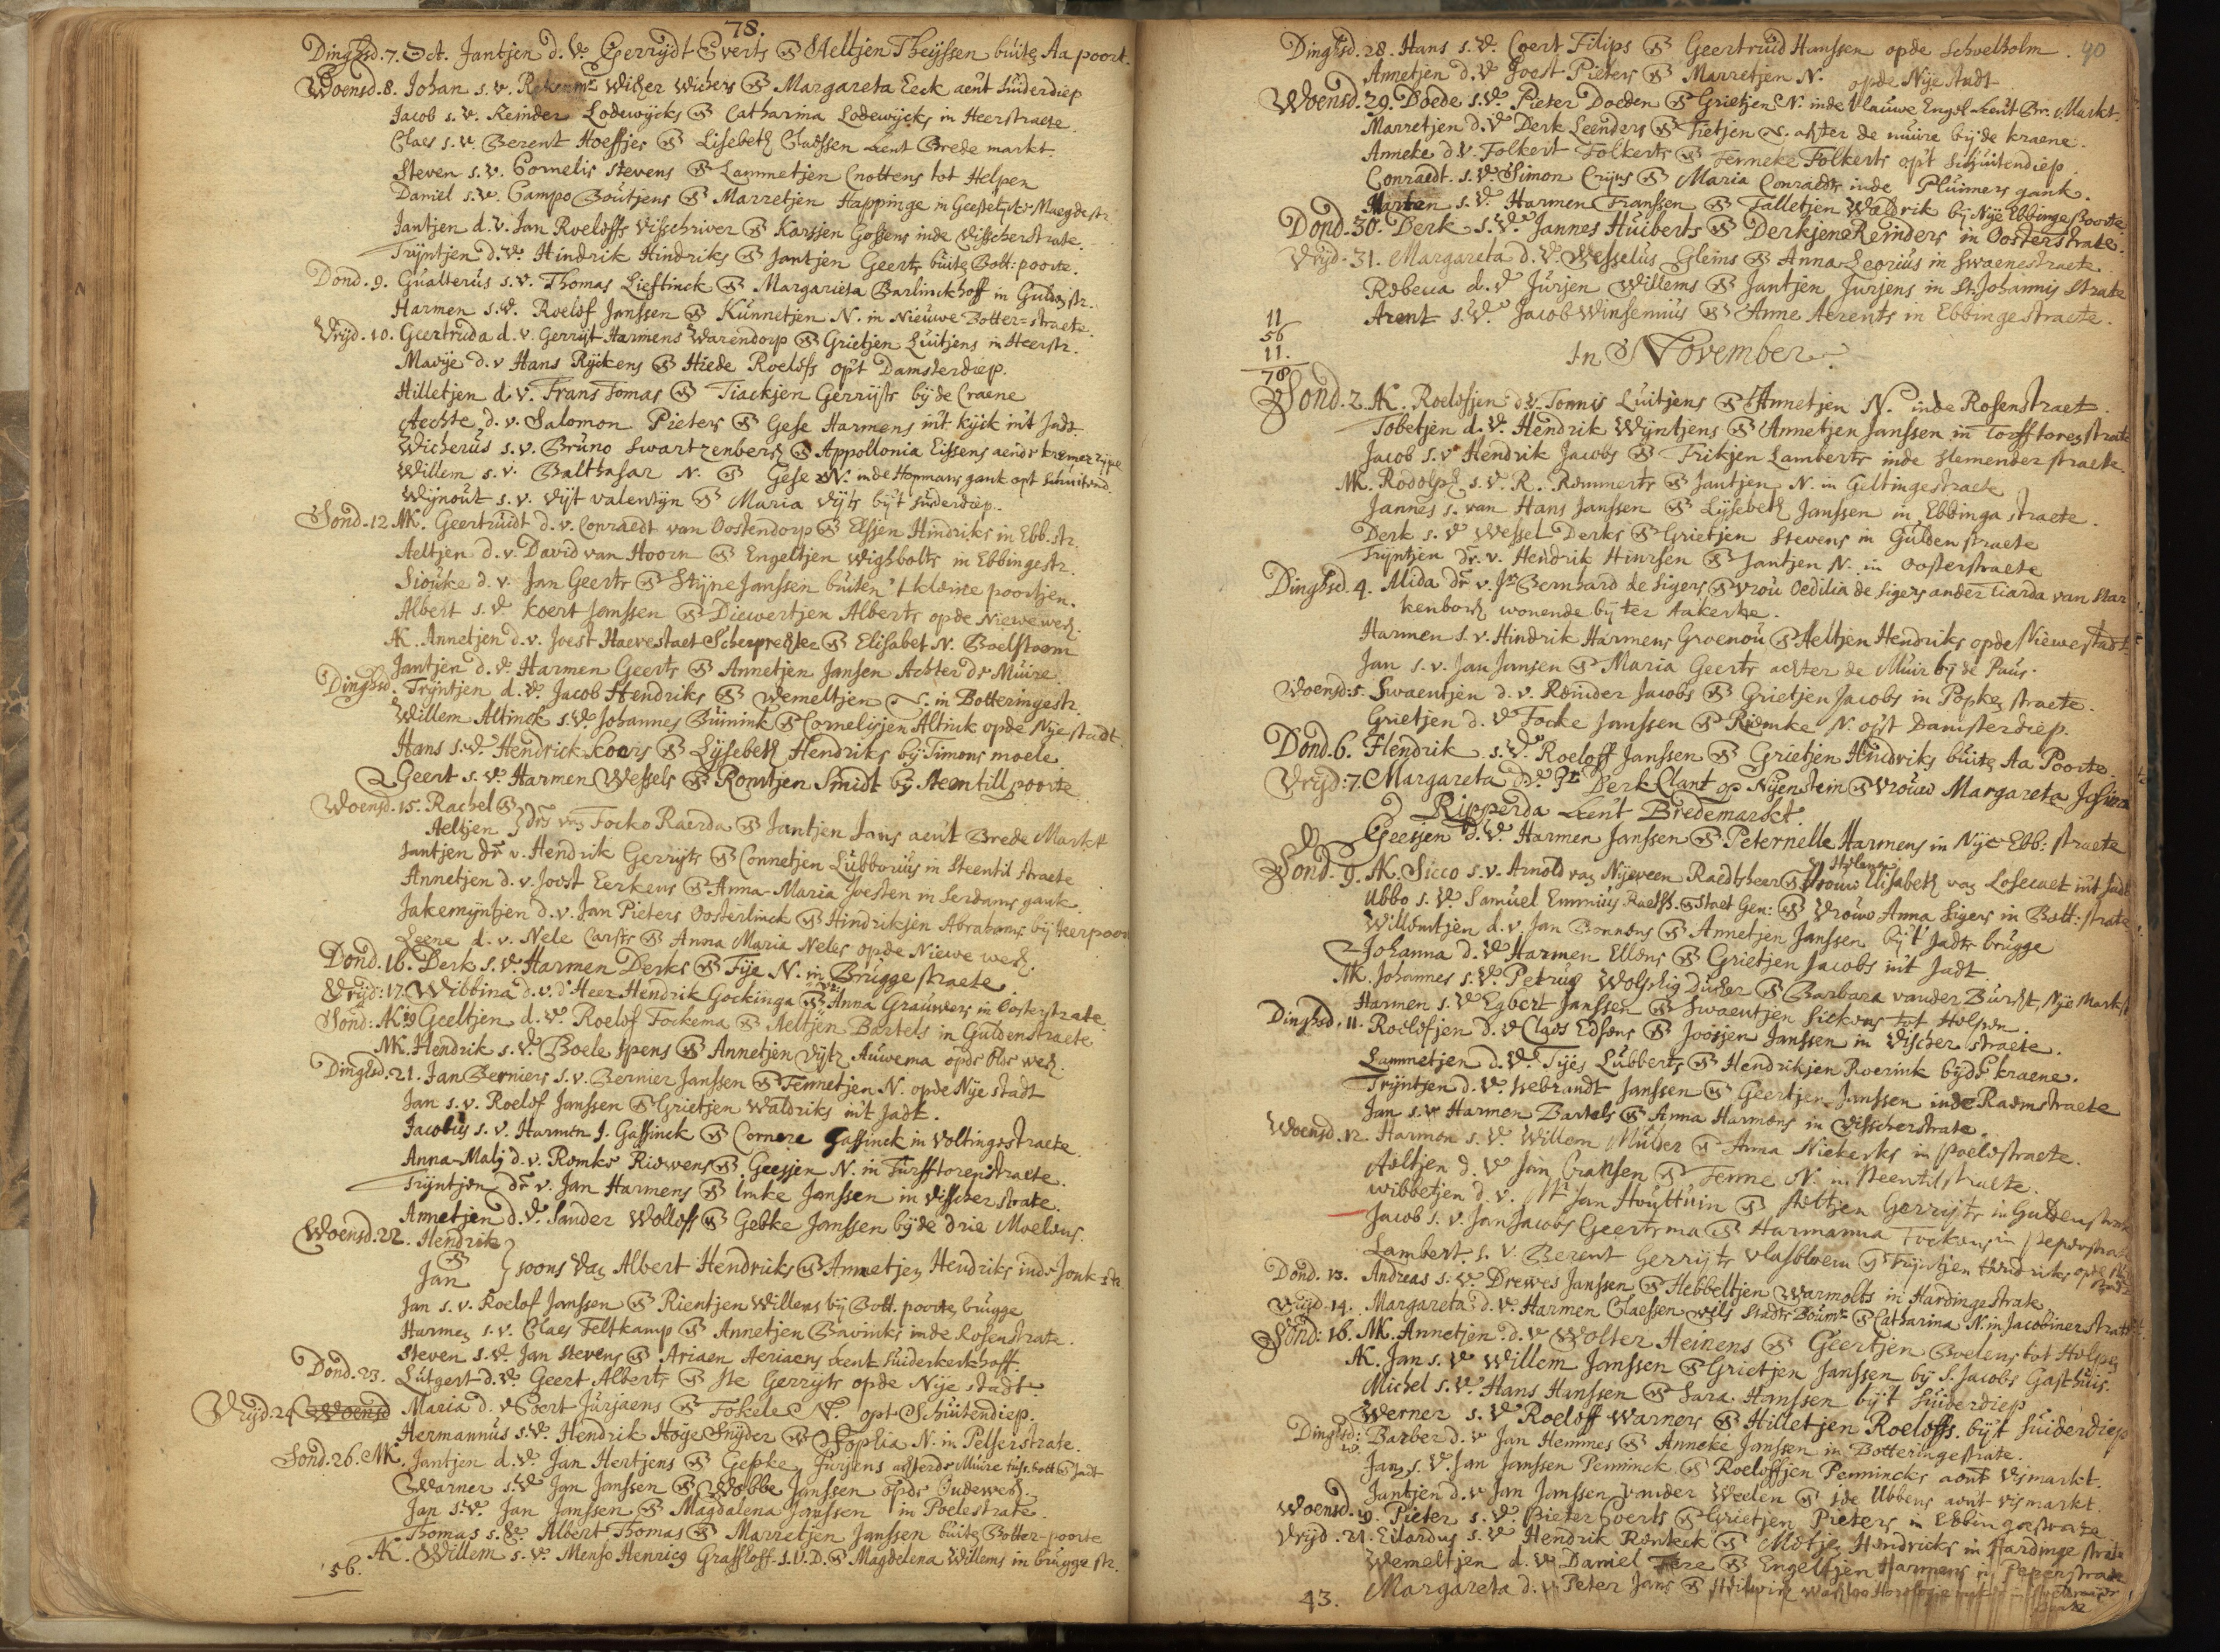 78.
Dinghsd. 7. Oct. Jantjen d. v. Gerrijdt Everts & Aeltjen Theijssen buite Aa poort.
Woensd. 8. Johan s. v. Wicher Wichers & Margareta Eeck aent Suiderdiep
Jacob s. v. Reinder Lodewijcks & Catharina Lodewijcks in Heerstraete.
Claes s. v. Berent Hoeffjes & Lisebeth Claessen aent Brede markt.
Steven s. v. Cornelis Stevens & Lammetjen Cnottens tot Helpen
Daniel s. v. Campo Boutjens & Marretjen Happinge in Maegdestr.
Jantjen d. v. Jan Roeloffs & Karsjen Gossens inde Visscherstrate.
Trijntjen d. v. Hindrik Hindriks & Jantjen Geerts buite Bott: poorte.
Dond. 9. Gualterus s. v. Thomas Lieftinck & Margarieta Barlinckhoff in Guldestr.
Harmen s. v. Roelof Janssen & Kunnetjen N. in Nieuwe Botter=straete.
Vrijd. 10. Geertruda d. v. Gerrijt Harmens Warendorp & Grietjen Luitjens in Heerstr.
Marije d. v Hans Rijckens & Hiede Roelofs op't Damsterdiep.
Hilletjen d. v. Frans Tomas & Tiackjen Gerrijts bij de Craene
Aechte d. v. Salomon Pieters & Gese Harmens int kijck int Jadt.
Wicherus s. v. Bruno Swartzenberg & Appollonia Eissens aende kremer rijpe
Willem s. v. Balthasar N. & Gese N. inde Hopmans gank opt Schuitend.
Wijnout s. v. Vijt Valentijn & Maria Vijts bij't Suderdiep.
Sond. 12. MK. Geertruidt d. v. Conraedt van Oostendorp & Elsjen Hindriks in Ebb. str.
Aeltjen d. v. David van Hoorn & Engeltjen Wighbolts in Ebbingestr.
Siouke d. v. Jan Geerts & Stijne Janssen buiten 't kleine poortjen.
Albert s. v. Koert Janssen & Diewertjen Alberts opde Niewe weg.
AK. Annetjen d. v. Joest Haevestaet Scherprechter & Elisabet N. Boelstoorn
Jantjen d. v. Harmen Geerts & Annetjen Jansen Achter de Muire.
Dinghsd. Trijntjen d. v. Jacob Hendriks & Wemeltjen N. in Botteringestr.
Willem Altinck s. v. Johannes Buinink & Cornelisjen Altink opde Nije stadt.
Hans s. v. Hendrick Koers & Lijsebeth Hendriks bij Timons moele.
Geert s. v. Harmen Wessels & Romtjen Smidt bij Steentill poorte
Woensd. 15. Rachel &
Aeltjen } drs van Focko Raerda & Jantjen Jans aent Brede Markt
Jantjen dr v. Hendrik Gerrijts & Connetjen Lubborus in Steentil straete
Annetjen d. v. Joost Eerkens & Anna-Maria Joesten in Serdams gank.
Jakemijntjen d. v. Jan Pieters Oosterlinck & Hindriksjen Abrahams bij Heerpoor
Leene d. v. Nele Carsts & Anna Maria Neles opde Niewe weg.
Dond. 16. Derk s. v. Harmen Derks & Fije N. in Brugge straete
Vrijd: 17. Wibbina d. v. d' Heer Hendrik Gockinga & Anna Grauwers in Oosterstrate.
Sond: AK 19 Geeltjen d. v. Roelof Fockema & Aeltjen Bartels in Guldenstraete
MK. Hendrik s. v. Boele Ipens & Annetjen Vijts Auwema opde Olde weg.
Dinghsd. 21. Jan Berniers s. v. Bernier Janssen & Fennetjen N. opde Nije stadt
Jan s. v. Roelof Janssen & Grietjen Waldriks int Jadt.
Jacobus s. v. Harmen J. Gassinck & Cornere Gassinck in Voltingestraete.
Anna-Malij d. v. Romke Riewens & Geesjen N. in Turfftorenstraete.
Trijntjen dr v. Jan Harmens & Imke Janssen in Visscherstrate.
Annetjen d. v. Sander Wolloffs & Gebke Janssen bij de drie Moelens.
Woensd. 22. Hendrik
&
Jan } soons van Albert Hendricks & Annetjen Hendriks inde Jonk str
Jan s. v. Roelof Janssen & Rientjen Willems bij Bott. poorte brugge
Harmen s. v. Claes Feltkamp & Annetjen Bavinks inde Rosenstrate.
Steven s. v. Jan Stevens & Ariaen Aeriaens aent Suiderkerkhoff.
Dond. 23. Lutgert d. v. Geert Alberts & Ite Gerrijts opde Nije stadt
Vrijd. 24 Woensd Maria d. v Coert Jurjaens & Fokele N. opt Schuitendiep.
Hermannus s. v. Hendrik Hoge Snijder & Sophia N. in Pelserstrate.
Sond. 26. MK. Jantjen d. v. Jan Hertjens & Gepke Jurjens achter de Muire tuss. bott & Jadt
Warner s. v. Jan Janssen & Wobbe Janssen opde Oudeweg.
Jan s. v. Jan Janssen & Magdalena Janssen in Poelestrate.
Thomas s. v. Albert Thomas & Marretjen Janssen buite Botter-poorte
AK. Willem s. v. Menso Henricq Grashoff. I. U. D. & Magdelena Willems in brugge str.
56.
Dinghsd. 28. Hans s. v. Coert Filips & Geertruid Hanssen opde Schoelholm. 40
Annetjen d. v Joest Pieters & Marretjen N. opde Nije stadt
Woensd. 29. Doede s. v. Pieter Doeden & Grietjen N. inde Blauwe Engel aent Br. Markt.
Marretjen d. v Derk Leenders & Tietjen N. achter de muire bij de kraene.
Anneke d. v. Folkert Folkerts & Fenneke Folkerts op't Schuitendiep.
Conraedt. s. v. Simon Crijns & Maria Conraedts inde Pluimers gank.
Marten s. v. Harmen Franssen & Talletjen Waldrik bij Nije Ebbinge poorte.
Dond. 30. Derk s. v. Jannes Huiberts & Derkjen Reinders in Oosterstrate.
Vrijd. 31. Margareta d. v. Wesselus Gleins & Anna Leorius in Swaenestraete.
Rebecca d. v Jurjen Willems & Jantjen Jurjens in St. Johannis Strate
Arent s. v. Jacob Winsemius & Anne Aerents in Ebbinge straete.
11
56
11.
78
In November.
Sond. 2. AK. Roelofjen d. v. Tonnis Luitjens & Annetjen N. inde Rosenstraet.
Tobetjen d. v. Hendrik Wijntjens & Annetjen Janssen in Torfftoren strate
Jacob s. v Hendrik Jacobs & Frikjen Lamberts inde Stemender straete.
MK. Rodolph s. v. R. Remmerts & Jantjen N. in Geltingestraete
Jannes s. van Hans Janssen & Lijsebeth Janssen in Ebbinga straete.
Derk s. v Wessel Derks & Grietjen Stevens in Gulden straete
Trijntjen dr. v. Hendrik Hinrsen & Jantjen N. in Oosterstraete
Dinghsd. 4. Alida dr v. Jr Bernhard de Sigers & vrou Oedilia de Sigers ander Tiarda van Star
kenborg wonende bij ter Aakerke.
Harmen s. v. Hindrik Harmens Groenou & Aeltjen Hendriks opde Niewestadt.
Jan s. v. Jan Jansen & Maria Geerts achter de Muir bij de Paus.
Woensd: 5. Swaentjen d. v. Reinder Jacobs & Grietjen Jacobs in Popken straete.
Grietjen d. v Focke Janssen & Riemke N. opt Damsterdiep.
Dond. 6. Hendrik s. v. Roeloff Janssen & Grietjen Hindriks buite Aa Poorte.
Vrijd: 7. Margareta d. v. Jr Derk Clant op Nijenstein & Vrouw Margareta Josina
Ripperda aent Bredemarckt.
Geesjen d. v. Harmen Janssen & Peternelle Harmens in Nije Ebb: straete
Sond. 9. AK. Sicco s. v. Arnold van Nijeveen Raedtsheer & Vrouw Elisabeth van Losecaet int Jadt
Ubbo s. v. Samuel Emmius Raeth. & Staet Gen: & Vrouw Anna Sigers in Bott: strate
Willemtjen d. v. Jan Bonnens & Annetjen Janssen bij 't Jadts brugge
Johanna d. v. Harmen Ellens & Grietjen Jacobs int Jadt.
MK. Johannes s. v. Petrus & Barbara vander Burcht, Nije Markt
Harmen s. v Egbert Janssen & Swaentjen Siekens tot Helpen.
Dinghsd. 11. Roelofjen d. v Claes Edsens & Joosjen Janssen in Visscher straete.
Lammetjen d. v. Tijes Lubberts & Hendrikjen Roerink bijde kraene.
Trijntjen d. v. Isebrandt Janssen & Geertjen Janssen inde Raemstraete
Jan s. v Harmen Bartels & Anna Harmens in Visscherstrate.
Woensd. 12. Harmen s. v. Willem Mulder & Anna Niekerks in Poelestraete.
Aeltjen d. v Jan Cransen & Fenne N. in Steentilstraete.
Wibbetjen d. v. Mr Jan Houttuin & Aeltjen Gerrijts in Guldenstrate
Jacob s. v. Jan Jacobs Geertsma & Harmanna Fockens in peperstrate
Lambert s. v. Berent Gerrijts Vlasbloem & Trijntjen Hendriks
Dond. 13. Andreas s. v. Drewes Janssen & Hebbeltjen Warmolts in Hardingestrate
Vrijd. 14. Margareta d. v. Harmen Claessen Stadts Boumr & Catharina N. in Jacobinerstrate
Sond: 16. MK. Annetjen d. v Wolter Heinens & Geertjen Boelens tot Helpen
AK. Jan s. v Willem Janssen & Grietjen Janssen bij S. Jacobs Gasthuis.
Michel s. v. Hans Hanssen & Sara Hanssen bijt Suiderdiep
Werner s. v Roeloff Warners & Hilletjen Roeloffs. bijt Suiderdiep
Dinghsd: Barber d. v Jan Hemmes & Anneke Janssen in Botteringestrate.
Jan s. v. Jan Janssen Penninck & Roeloffjen Pennincks aent Vismarkt.
Jantjen d. v Jan Janssen vander Weelen & Ide Ubbens aent vismarkt.
Woensd. 19. Pieter s. v. Pieter Coerts & Grietjen Pieters in Ebbingestrate
Vrijd. 21. Eilardus s. v Hendrik Renkeck & Metjen Hendricks in Hardinge strate
Wemeltjen d. v Daniel Fere & Engeltjen Harmens in Peperstrate
Margareta d. v Peter Jans &
43.